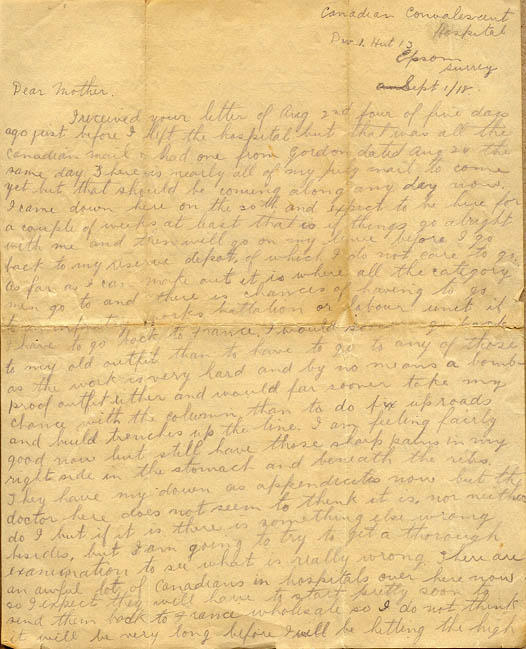 Canadian Convalescent
Hospital
Div 1. Hut 13
Epsom
Surrey
Sept 1/18
Dear Mother.
I received your letter of Aug 2nd four of five days
ago just before I left the hospital but that was all the
Canadian mail I had one from Gordon dated Aug 24 the
same day. There is nearly all of my July mail to come
yet but that should be coming along any day now.
I came down here on the 30th and expect to be here for
a couple of weeks at least that is if things go alright
with me and then will go on my leave before I go
back to my reserve depot, of which I do not care to go.
As far as I can make out it is where all the category
men go to and there is chances of having to go
to works battalion or labour unit if
I have to go back to France I would go back
to my old outfit than to have to go to any of those
as the work is very hard and by no means a bomb-
proof outfit either and would far sooner take my
chance with the column than to do fix up roads
and build trenches up the line. I am feeling fairly
good now but still have those sharp pains in my
right side in the stomach and beneath the ribs.
They have my down as appendicitis now but the
doctor here does not seem to think it is, nor neither
do I but if it is there is something else wrong
besides, but I am going to try to get a thorough
examination to see what is really wrong. There are
an awful lot of Canadians in hospitals over here now
so I expect they will have to start pretty soon to
send them back to France wholesale so I do not think
it will be very long before I will be hitting the high